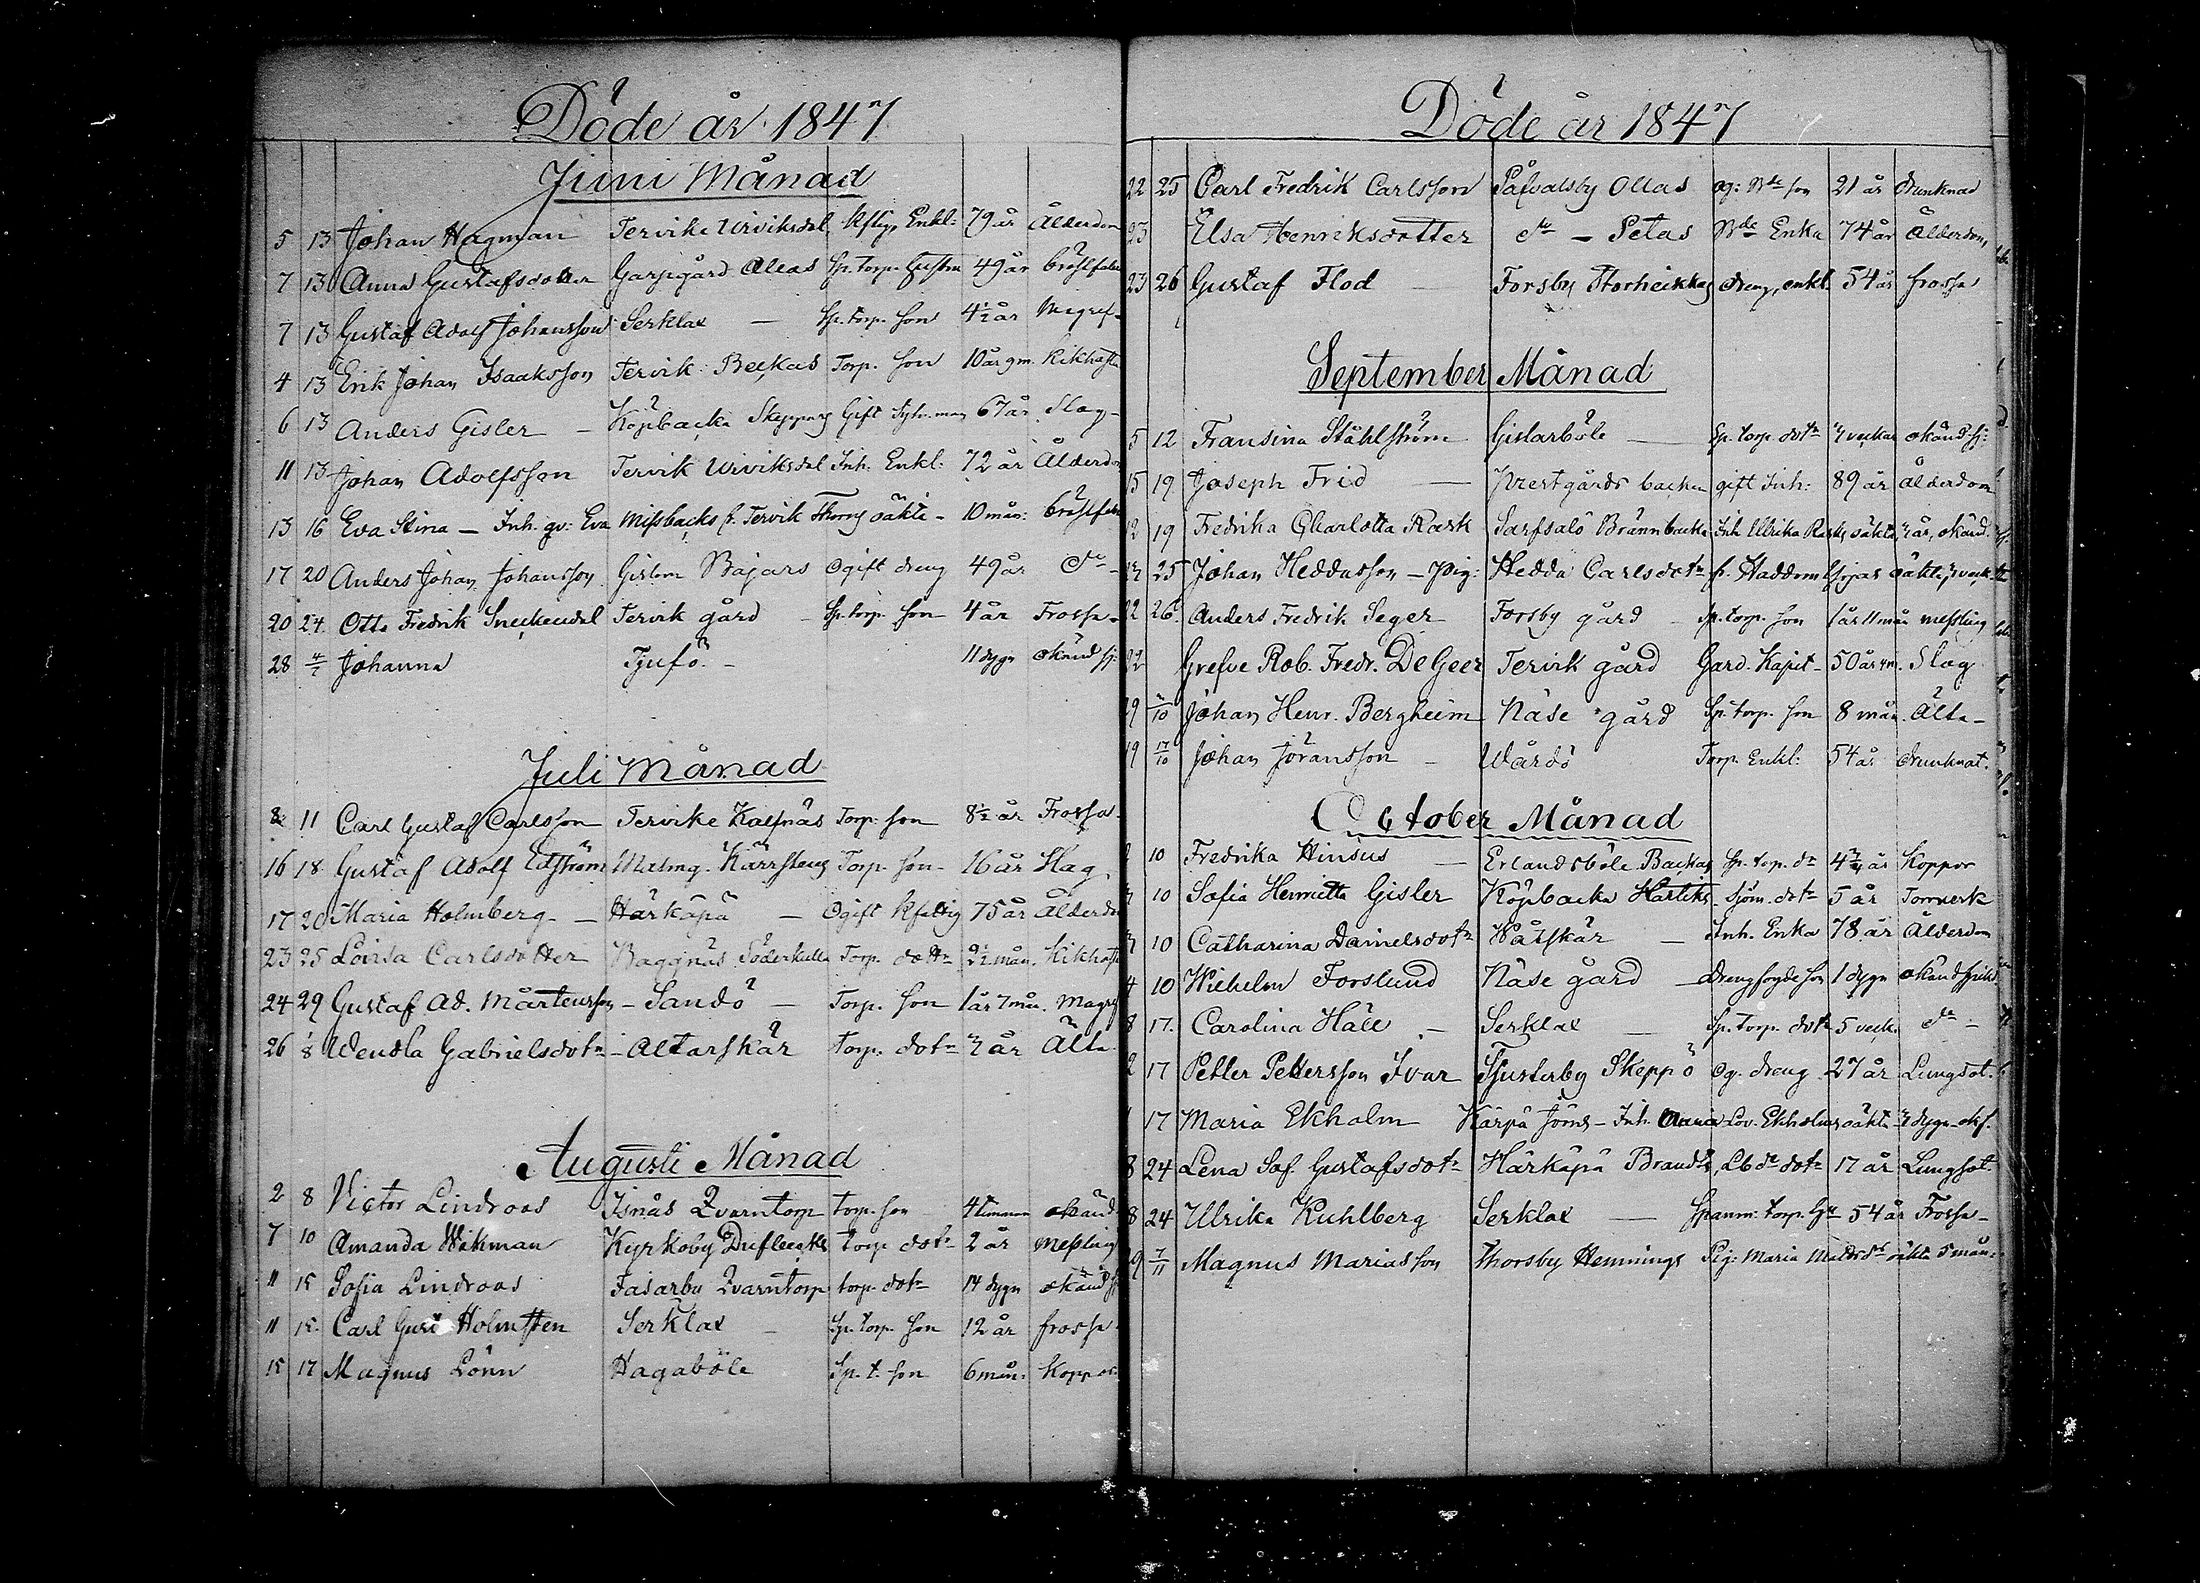 Döde år 1847
Juni Månad
5 13 Johan Hagman Tervike Urviksdal kftig, Enkl: 79 år Ålderdom
7 13 Anna Gustafsdotter Garpgård Sp. torp. Hustru 49 år bröstfeber
7 13 Gustaf Adolf Johansson Serklax — Sp. torp. son 4½ år Magref-
4 13 Erik Johan Isaaksson Tervik Beckas Torp. son 10 år 9 m. Kikhosta
6 13 Anders Gisler — Köpbacka Skeppars Gift 67 år Slag-
11 13 Johan Adolfsson Tervik Urviksdal Inh. Enkl: 72 år Ålderdom
13 16 Eva Stina — Inh. qv: Eva Missbacks fr. Tervik oäkta - 10 mån: bröstfeber
17 20 Anders Johan Johansson Gislom Bäjars Ogift dreng 49 år do -
20 24. Otto Fredrik Sneckendal Tervik gård - Sp. torp. son 4 år Frossa-
28 4/7 Johanna Tjufö. - 11 dygn okänd sj:
Juli Månad
8 11 Carl Gustaf Carlsson Tervike Kalfnäs Torp. son 8½ år Frossa-
16 18 Gustaf Adolf Edström Malmg. Kärrstens Torp. son - 16 år Slag,
17 20 Maria Holmberg - — Härkäpä — Ogift kfattig 75 år Ålderdom
23 25 Lovisa Carlsdotter Baggnäs Söderkulla Torp. dottr 2½ mån. Kikhosta
24 29 Gustaf Ad. Mårtensson - Sandö — Torp. son 1 år 7 mån. Magref
26 1/8 Wendla Gabrielsdotr - Altarskär Torp. dotr 7 år Älta-
Augusti Månad
2 8 Victor Lindroos Isnäs Qvarntorp torp. son 4 timmar okänd
7 10 Amanda Wikman Kyrkoby torp dotr 2 år Messling
11 15 Sofia Lindroos Fasarby Qvarntorp torp. dotr 14 dygn okänd sj
11 15. Carl Gust Holmsten Serklax — Sp. torp. son 12 år frossa-
15 17 Magnus Lönn Hagaböle Sp. t. son 6 mån. Koppor
Döde år 1847
22 25 Carl Fredrik Carlsson Påfvalsby Ollas og: Bde son 21 år drunknad
23 Elsa Henriksdotter do — Petas Bde Enka 74 år Ålderdom,
23 26 Gustaf Flod — Forsby Storheikkas dreng, enkl. 54 år frossa
September Månad
5 12 Fransina Ståhlström Gislarböle — Sp. torp. dotr 7 veckor okänd sj:
15 19 Joseph Frid — Prestgårds backen gift Inh: 89 år ålderdom
12 19 Fredrika Charlotta Rask Sarfsalö Brännbacka Inh Ulrika Rasks oäkta, 7 år, okänd.
17 25 Johan Heddasson — Pig: Hedda Carlsdotr fr. Haddom oäkta, 7 veck.
22 26. Anders Fredrik Seger Forsby gård — Sp. torp. son 1 år 11 mån messling
22 Grefve Rob. Fredr. DeGeer Tervik gård Gard. Kapit - 50 år 4 m. Slag
29 3/10 Johan Henr. Bergheim Näse gård Sp. torp. son 8 mån. Älta-
19 17/10 Johan Jöransson — Wårdö Torp. Enkl: 54 år drunknat.
October Månad
2 10 Fredrika Hinsus — Erlandsböle Backas Sp. torp. dr 4¾ år Koppor
3 10 Sofia Henrietta Gisler Köpbacka Hartiks Sjöm. dotr 5 år Torrverk
3 10 Catharina Danielsdotr Håtskär — Inh. Enka 78 år Ålderdom
4 10 Wilhelm Forslund Näse gård — Drengfogdeson 1 dygn okänd sjukd
8 17. Carolina Häll. — Serklax — Sp. torp. dotr 5 veck. do —
2 17 Petter Pettersson Ivar Tjusterby Skeppö Og. dreng 27 år Lungsot.
17 Maria Ekholm Kärpä Jöns — Inh. Maria Lov. Ekholms oäkta 7 dygn -okj.
8 24 Lena Sof. Gustafsdotr Härkäpä Brandts, Lbde dotr 17 år Lungsot.
8 24 Ulrika Kuhlberg Serklax — Spanm. torp. 54 år Frossa-
29 7/11 Magnus Mariasson Thorsby Hemnings Pig: Maria Mattsdr oäkta 5 mån: